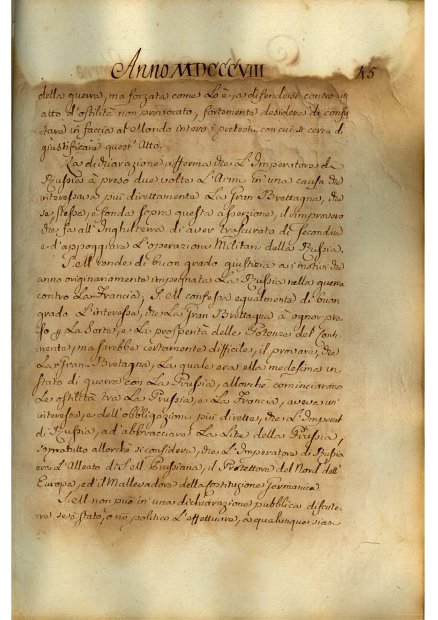 Anno MDCCCVIII 45
della guerra, ma forzata come Lo è, a difendersi contro un
atto d'ostilità non provocato, fortemente desidera di confu
tare in faccia al Mondo intero i pretesti, con cui si cerca di
giustificare quest'Atto.
La dichiarazione afferma che L'Imperatore di
Russia à preso due volte L'Armi in una causa che
interessava più direttamente La Gran Brettagna, che
se stesso, e fonda sopra questa asserzione, il rimprovero
che fa all'Inghilterra di aver trascurato di secondare
e d'appoggiare L'operazioni Militari della Russia.
S. M. rende di buon grado giustizia a i motivi che
anno originariamente impegnata La Russia nella guerra
contro La Francia, S. M. confessa egualmente di buon
grado L'interesse, che La Gran Brettagna à ognor pre
so p La Sorte, e La prosperità delle Potenze del Conti
nente, ma sarebbe certamente difficile, il provare, che
La Gran Bretagna, La quale era ella medesima in
stato di guerra con La Prussia, allorchè cominciarono
Le ostilità tra La Prussia, e La Francia, aveva un'
interesse, e dell'obbligazioni più dirette, che L'Imperat
di Russia, ad abbracciare La Lite della Prussia,
sopratutto allorchè si considera, che L'Imperatore di Russia
era L'Alleato di S. M. Prussiana, il Protettore del Nord dell'
Europa, ed il Mallevadore della Costituzione Germanica.
S. M. non può in una dichiarazione pubblica discute-
re se è stato, o nò politico L'effettuare, a qualunque siasi